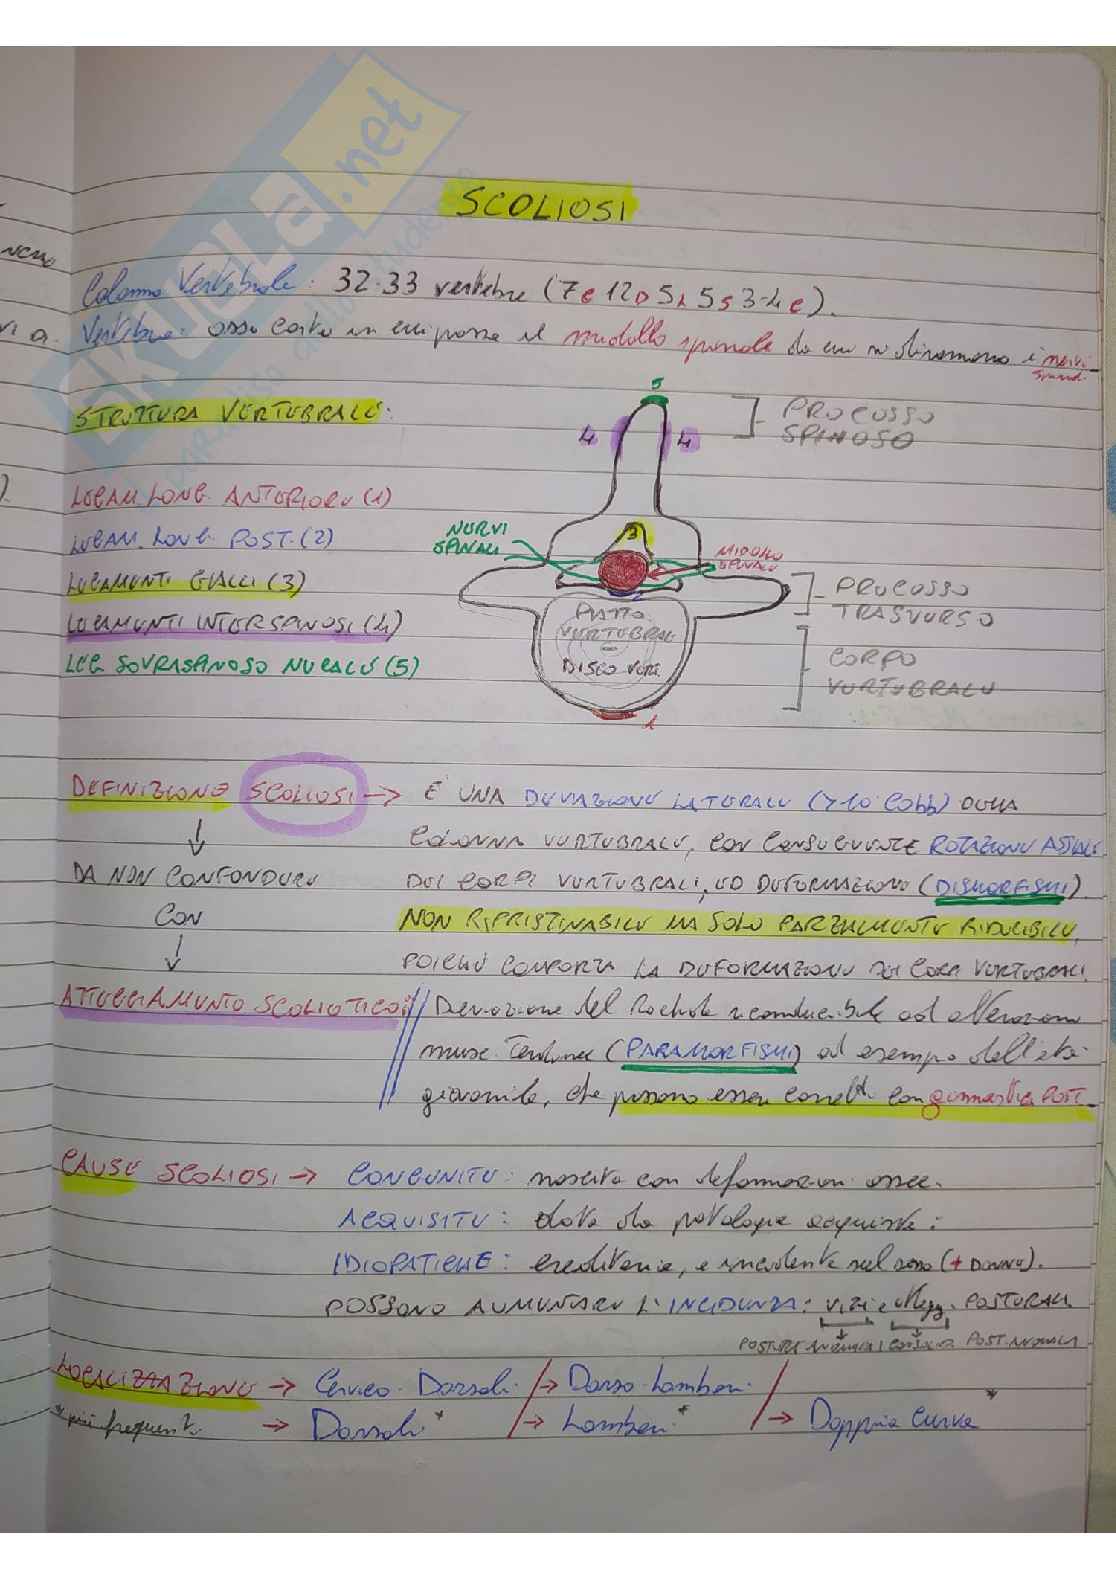 SKUOLA.net
SCOLIOSI
Colonna Vertebrale: 32-33 vertebre (7c 12D 5L 5s 3-4c).
Vertebra: osso corto in cui passa il midollo spinale da cui si diramano i nervi
spinali
STRUTTURA VERTEBRALE:
PROCESSO
SPINOSO
5
4 4
LEGAM. LONG. ANTERIORE (1)
LEGAM. LONG. POST. (2)
LEGAMENTI GIALLI (3)
LEGAMENTI INTERSPINOSI (4)
LEG. SOVRASPINOSO NUCALE (5)
NERVI
SPINALI
3
MIDOLLO
SPINALE
2
PROCESSO
TRASVERSO
PIATTO
VERTEBRAL
DISCO VERT.
CORPO
VERTEBRALE
1
DEFINIZIONE SCOLIOSI → È UNA DEVIAZIONE LATERALE (>10 COBB) DELLA
COLONNA VERTEBRALE, CON CONSEGUENTE ROTAZIONE ASSIALE
DA NON CONFONDERE DEI CORPI VERTEBRALI, ED DEFORMAZIONE (DISMORFISMI)
CON NON RIPRISTINABILE MA SOLO PARZIALMENTE RIDUCIBILE,
POICHÉ COMPORTA LA DEFORMAZIONE DEI CORPI VERTEBRALI.
ATTEGGIAMENTO SCOLIOTICO: // Deviazione del Rachide riconducibile ad alterazioni
musc. Tendinee (PARAMORFISMI) ad esempio dell'età
giovanile, che possono essere corretti con ginnastica POST.
CAUSE SCOLIOSI → CONGENITE: nascita con deformazioni ossee.
ACQUISITE: date da patologie acquisite:
IDIOPATICHE: ereditaria, e incidente sul sesso (+ DONNE).
POSSONO AUMENTARE L'INCIDENZA: vizi e atteg. POSTURALI.
LOCALIZZAZIONE → Cervico-Dorsali / → Dorso-Lombari /
* più frequenti. → Dorsali * / → Lombari * / → Doppia Curva *